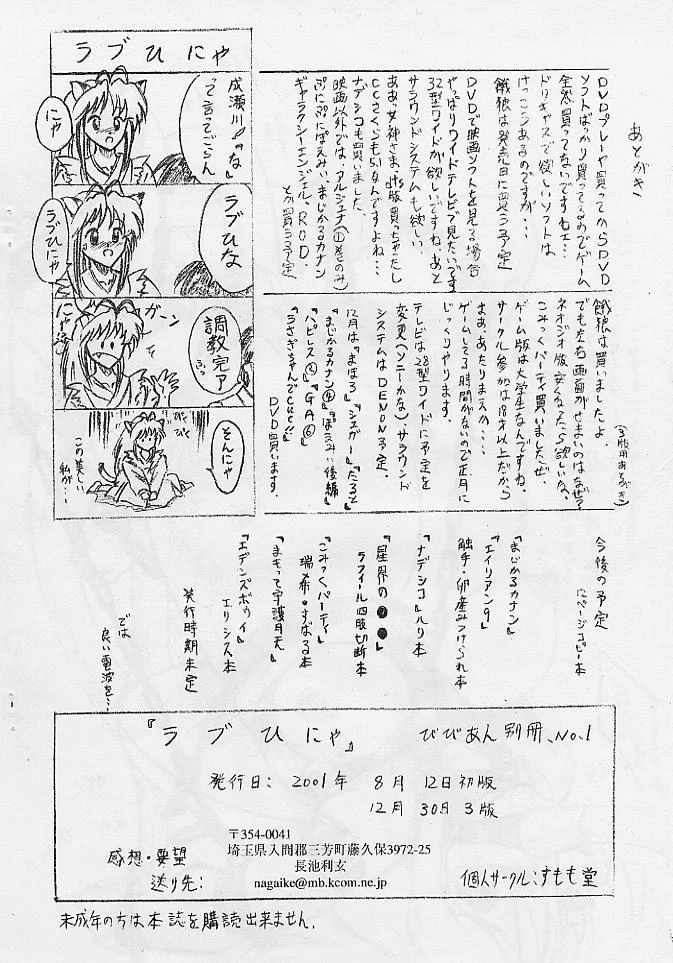 ラブひにゃ
成瀬川の「な」
って言ってごらん
にゃ
ラブひな
ラブひにゃ
ガーン
調教完了
ふっ
にゃ
びくびく
そんにゃ
この美しい
私が…
あとがき
DVDプレーヤ買ってからDVD
ソフトばっかり買ってるのでゲーム
全然買ってないですねェ…
ドリキャスで欲しいソフトは
けっこうあるのですが…
餓狼は発売日に買う予定
DVDで映画ソフトを見る場合
やっぱりワイドテレビで見たいです
32型ワイドが欲しいですね。あと
サラウンドシステムも欲しい
ああっ女神さまっdts版買っちゃったし
CCさくらも5.1なんですよね…
ナデシコも買いました。
映画以外では、アルジェナ(①巻のみ)
ぷにぷにぽえみぃ、まじかるカナン
ギャラクシーエンジェル、R.O.D.
とか買う予定
(3版用あとがき)
餓狼は買いましたよ。
でも左右画面がせまいのはなぜ?
ネオジオ版安くなったら欲しいな。
こみっくパーティ買いましたぜ。
ゲーム版は大学生なんですね。
サークル参加は18才以上だから
まぁ、あたりまえか…
ゲームしてる時間がないので正月に
じっくりやります。
テレビは28型ワイドに予定を
変更(ソニーかな)、サラウンド
システムはDENON予定、
12月は『まほろ』『ジェガー』『たると』
『まじかるカナン④』『ぽえみぃ後編』
『ハピレス②』『GA⑥』
『うさぎちゃんでCue!!』
DVD買います。
今後の予定
12ページコピー本
『まじかるカナン』
『エイリアン9』
触手・卵産みつけられ本
『ナデシコ』ルリ本
『星界の●●』
ラフィール四肢切断本
『こみっくパーティ』
瑞希・すばる本
『まもって守護月天』
『エデンズボゥイ』
エリシス本
発行時期未定
では
良い電波を…
『ラブひにゃ』 びびあん別冊、No.1
発行日: 2001年 8月 12日 初版
12月 30日 3版
〒354-0041
埼玉県入間郡三芳町藤久保3972-25
長池利玄
nagaike@mb.kcom.ne.jp
感想・要望
送り先:
個人サークル:すもも堂
未成年の方は本誌を購読出来ません.